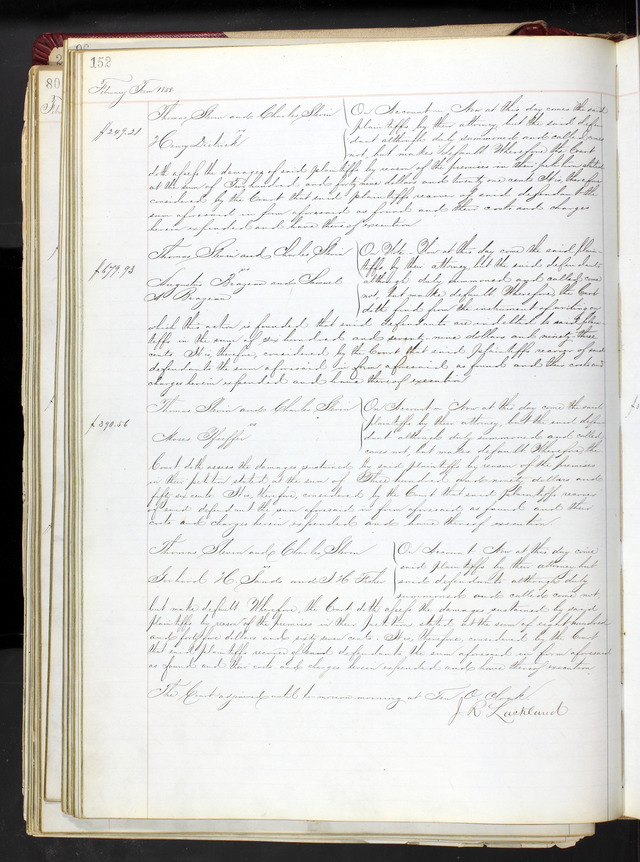 152
February Term 1858
Thomas Stevin and Charles Stevin
vs
Henry
$249.21
On Account - Now at this day comes the said
plaintiffs by their attorney but the said defen-
dant although duly summoned and called comes
not, but makes default. Wherefore the Court
doth assess the damages of said plaintiffs by reason of the premises in their petition stated
at the sum of Two hundred and forty nine dollars and twenty one cents. It is therefore
considered by the Court that said plaintiffs recover of said defendant the
sum aforesaid in form aforesaid as found and their costs and charges
herein expended and have thereof execution
Thomas Stevin and Charles Stevin
vs
Augustus and Samuel
$679.93
On Note. Now at this day come the said plain-
tiffs by their attorney, but the said defendants
although duly summoned and called come
not, but make default. Wherefore, the Court
doth find from the instrument of writing on
which this action is founded, that said defendants are indebted to said plain-
tiffs in the sum of six hundred and seventy nine dollars and ninety three
cents. It is, therefore, considered by the Court that said plaintiffs recover of said
defendants the sum aforesaid in form aforesaid as found and their costs and
charges herein expended and have thereof execution
Thomas Stevin and Charles Stevin
vs
Moses Pfeiffer
$390.56
On Account - Now at this day come the said
plaintiffs by their attorney, but the said defen-
dant although duly summoned and called
comes not, but makes default. Wherefore, the
Court doth assess the damages sustained by said plaintiffs by reason of the premises
in their petition stated, at the sum of Three hundred and ninety dollars and
fifty six cents. It is, therefore, considered by the Court that said plaintiffs recover
of said defendant the sum aforesaid in form aforesaid as found and their
costs and charges herein expended and have thereof execution
Thomas Stevin and Charles Stevin
vs
H and H
On Account. Now at this day come
said plaintiffs by their attorney, but
said defendants although duly
summoned and called come not,
but make default. Wherefore, the Court doth assess the damages sustained by said
plaintiffs by reason of the premises in their petition stated, at the sum of eight hundred
and forty four dollars and sixty seven cents. It is, therefore, considered by the Court
that said plaintiffs recover of said defendants the sum aforesaid in form aforesaid
as found and their costs and charges herein expended and have thereof execution
The Court adjourned until to morrow morning at Ten O Clock
J. R. Lackland